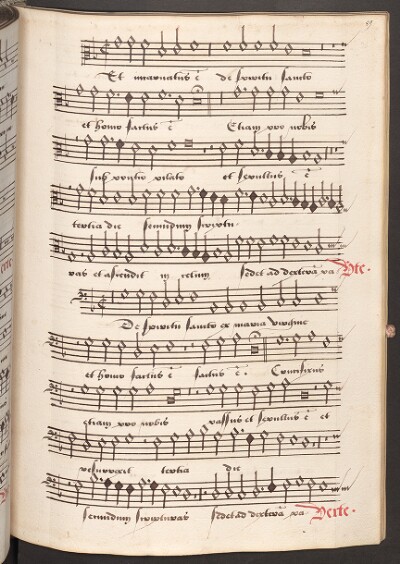 Et incarnatus ē de spiritu sancto
et homo factus ē Etiam pro nobis
sub pontio pilato et sepultus ē
tertia die secundum scriptu
ras et ascendit in celum sedet ad dexterā pa Vte.
De spiritu sancto ex maria virgine
et homo factus ē factus ē. Crucifixus
etiam pro nobis passus et sepultus ē et
resurrexit tertia die
secundum scripturas sedet ad dexterā pa Verte.